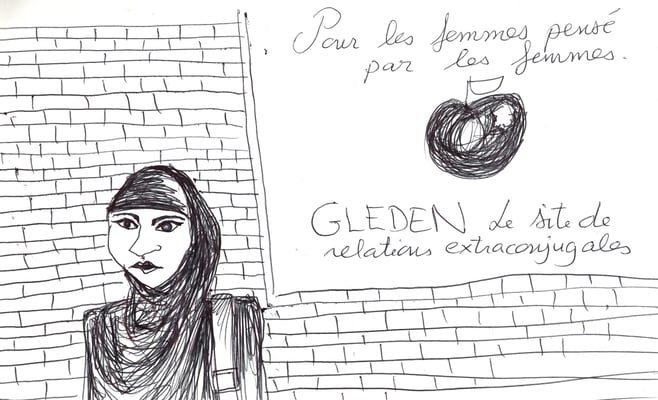 Pour les femmes pensé
par les femmes.
GLEDEN Le site de
relations extraconjugales